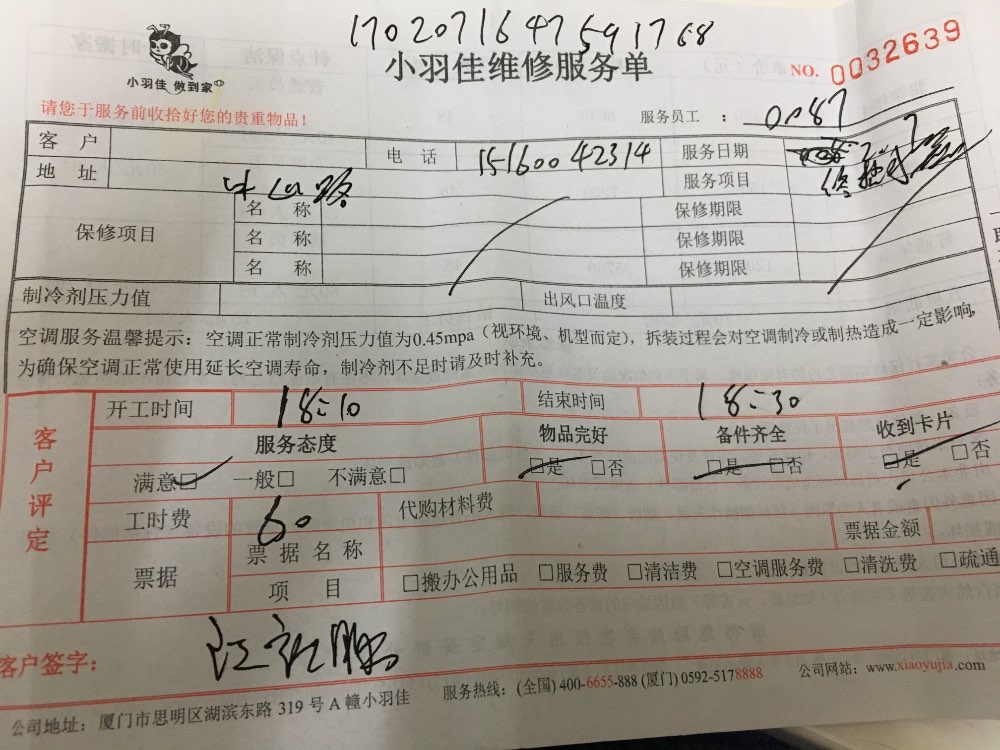 1702071647591768
小羽佳 做到家
小羽佳维修服务单
NO. 0032639
请您于服务前收拾好您的贵重物品！
服务员工 ： 0087
客 户
电 话 15160042314
服务日期
地 址
服务项目
保修项目
名 称
保修期限
名 称
保修期限
名 称
保修期限
制冷剂压力值
出风口温度
空调服务温馨提示：空调正常制冷剂压力值为0.45mpa（视环境、机型而定），拆装过程会对空调制冷或制热造成一定影响，
为确保空调正常使用延长空调寿命，制冷剂不足时请及时补充。
客户评定
开工时间 18:10
结束时间 18:30
服务态度
物品完好
备件齐全
收到卡片
满意□ 一般□ 不满意□
□是 □否
□是 □否
□是 □否
工时费 60
代购材料费
票据
票据名称
票据金额
项 目
□搬办公用品 □服务费 □清洁费 □空调服务费 □清洗费 □疏通
客户签字：
公司地址：厦门市思明区湖滨东路 319 号 A 幢小羽佳
服务热线：(全国) 400-6655-888 (厦门) 0592-5178888
公司网站：www.xiaoyujia.com